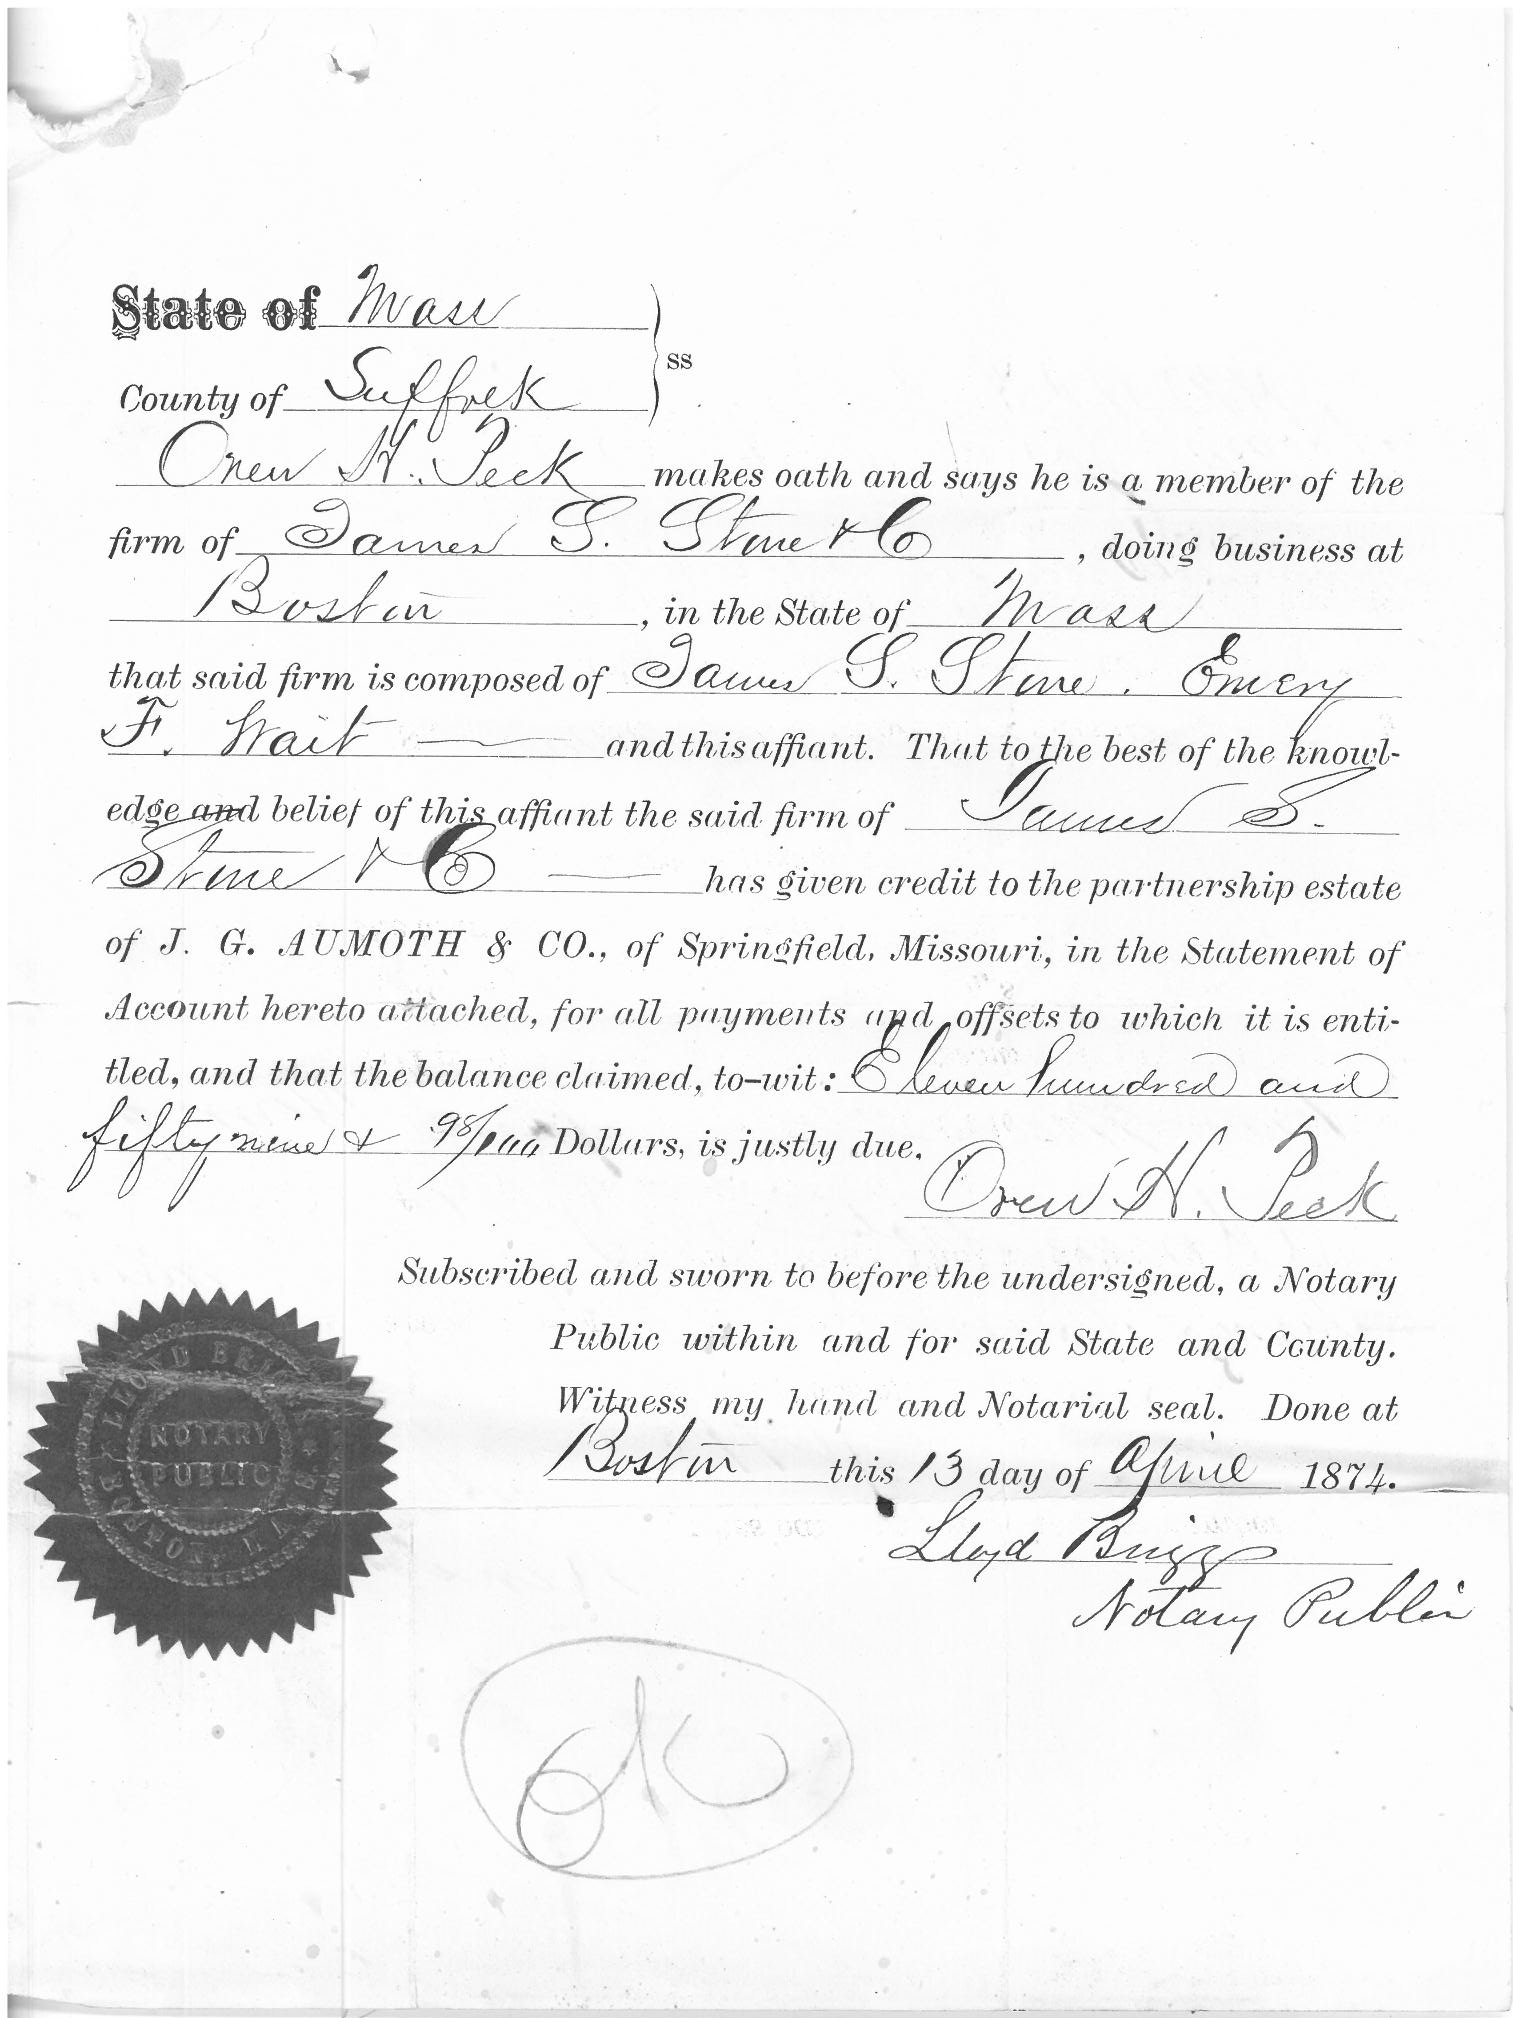 State of Mass
ss
County of Suffolk
Oren H. Peck makes oath and says he is a member of the
firm of James S. Stone & Co , doing business at
Boston , in the State of Mass
that said firm is composed of James S. Stone. Emery
F. Wait and this affiant. That to the best of the knowl-
edge and belief of this affiant the said firm of James S.
Stone & Co has given credit to the partnership estate
of J. G. AUMOTH & CO., of Springfield, Missouri, in the Statement of
Account hereto attached, for all payments and offsets to which it is enti-
tled, and that the balance claimed, to-wit: Eleven hundred and
fifty nine & 98/100 Dollars, is justly due.
Oren H. Peck
Subscribed and sworn to before the undersigned, a Notary
Public within and for said State and County.
Witness my hand and Notarial seal. Done at
Boston this 13 day of April 1874.
Lloyd Briggs
Notary Public
NOTARY
PUBLIC
OK